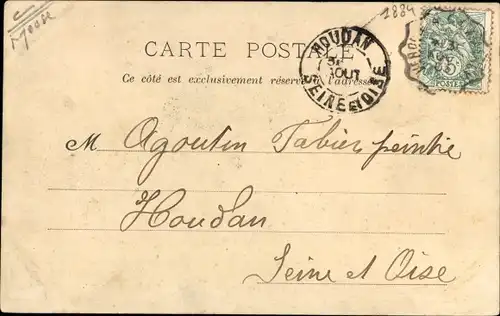 1884
Mode
CARTE POSTALE
Ce côté est exclusivement réservé à l'adresse
HOUDAN
31
AOUT
SEINE ET OISE
5
POSTES
M Agoutin Tabier peintre
Houdan
Seine et Oise